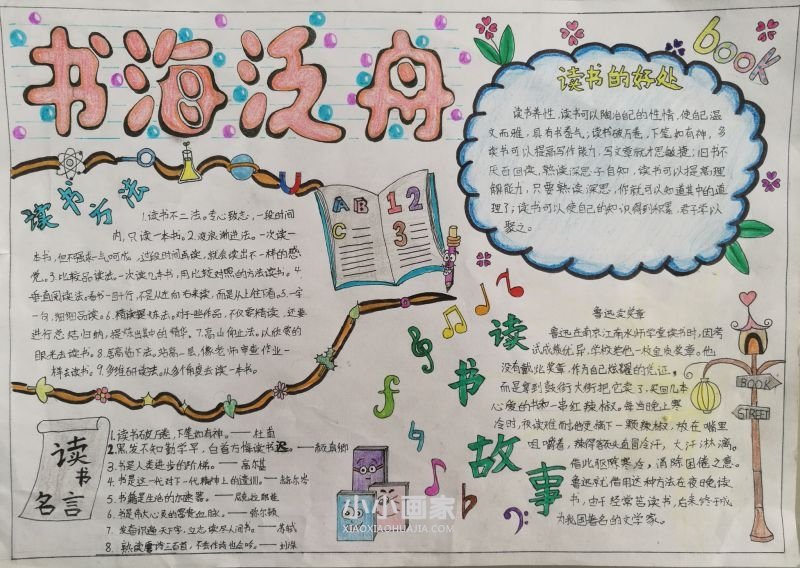 书海泛舟
book
读书的好处
读书养性，读书可以陶冶自己的性情，使自己温
文而雅，具有书卷气；读书破万卷，下笔如有神，多
读书可以提高写作能力，写文章就才思敏捷；旧书不
厌百回读，熟读深思子自知，读书可以提高理
解能力，只要熟读深思，你就可以知道其中的道
理了；读书可以使自己的知识得到积累，君子学以
聚之。
读书方法
1.读书不二法。专心致志，一段时间
内，只读一本书。2.波浪渐进法。一次读一
本书，但不强求一气呵成，过段时间再读，就会读出不一样的感
觉。3.比较品读法。一次读几本书，用比较对照的方法读书。4.
垂直阅读法。看书一目十行，不是从左向右来读，而是从上往下看。5.一字
一句，细细品读。6.精读提炼法。对于一些作品，不仅要精读，还要
进行总结归纳，提炼出其中的精华。7.高山仰止法。以欣赏的
眼光去读书。8.居高临下法。站高一层，像老师审查作业一
样去读书。9.多维研读法。从多个角度去读一本书。
AB
C
12
3
读书名言
1.读书破万卷，下笔如有神。——杜甫
2.黑发不知勤学早，白首方悔读书迟。——颜真卿
3.书是人类进步的阶梯。——高尔基
4.书是这一代对下一代精神上的遗训。——赫尔岑
5.书籍是生活的加速器。——
6.书是伟大心灵的富贵血脉。——弥尔顿
7.发奋识遍天下字，立志读尽人间书。——苏轼
8.熟读唐诗三百首，不会作诗也会吟。——孙洙
读书故事
鲁迅卖奖章
鲁迅在南京江南水师学堂读书时，因考
试成绩优异，学校奖他一枚金质奖章。他
没有戴此奖章，作为自己炫耀的凭证，
而是拿到鼓楼大街把它卖了，买回几本
心爱的书和一串红辣椒。每当晚上寒
冷时，夜读难耐，他便摘下一颗辣椒，放在嘴里
咀嚼着，辣得额头直冒冷汗，大汗淋漓。
借此驱阵寒冷，消除困倦之意。
鲁迅就借用这种方法在夜晚读
书，由于经常苦读书，后来终于成
为我国著名的文学家。
BOOK
STREET
小小画家
XIAOXIAOHUAJIA.COM